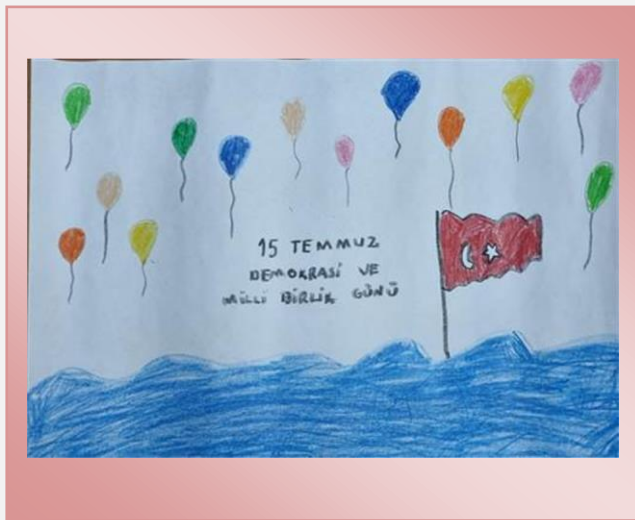 15 TEMMUZ
DEMOKRASİ VE
MİLLİ BİRLİK GÜNÜ